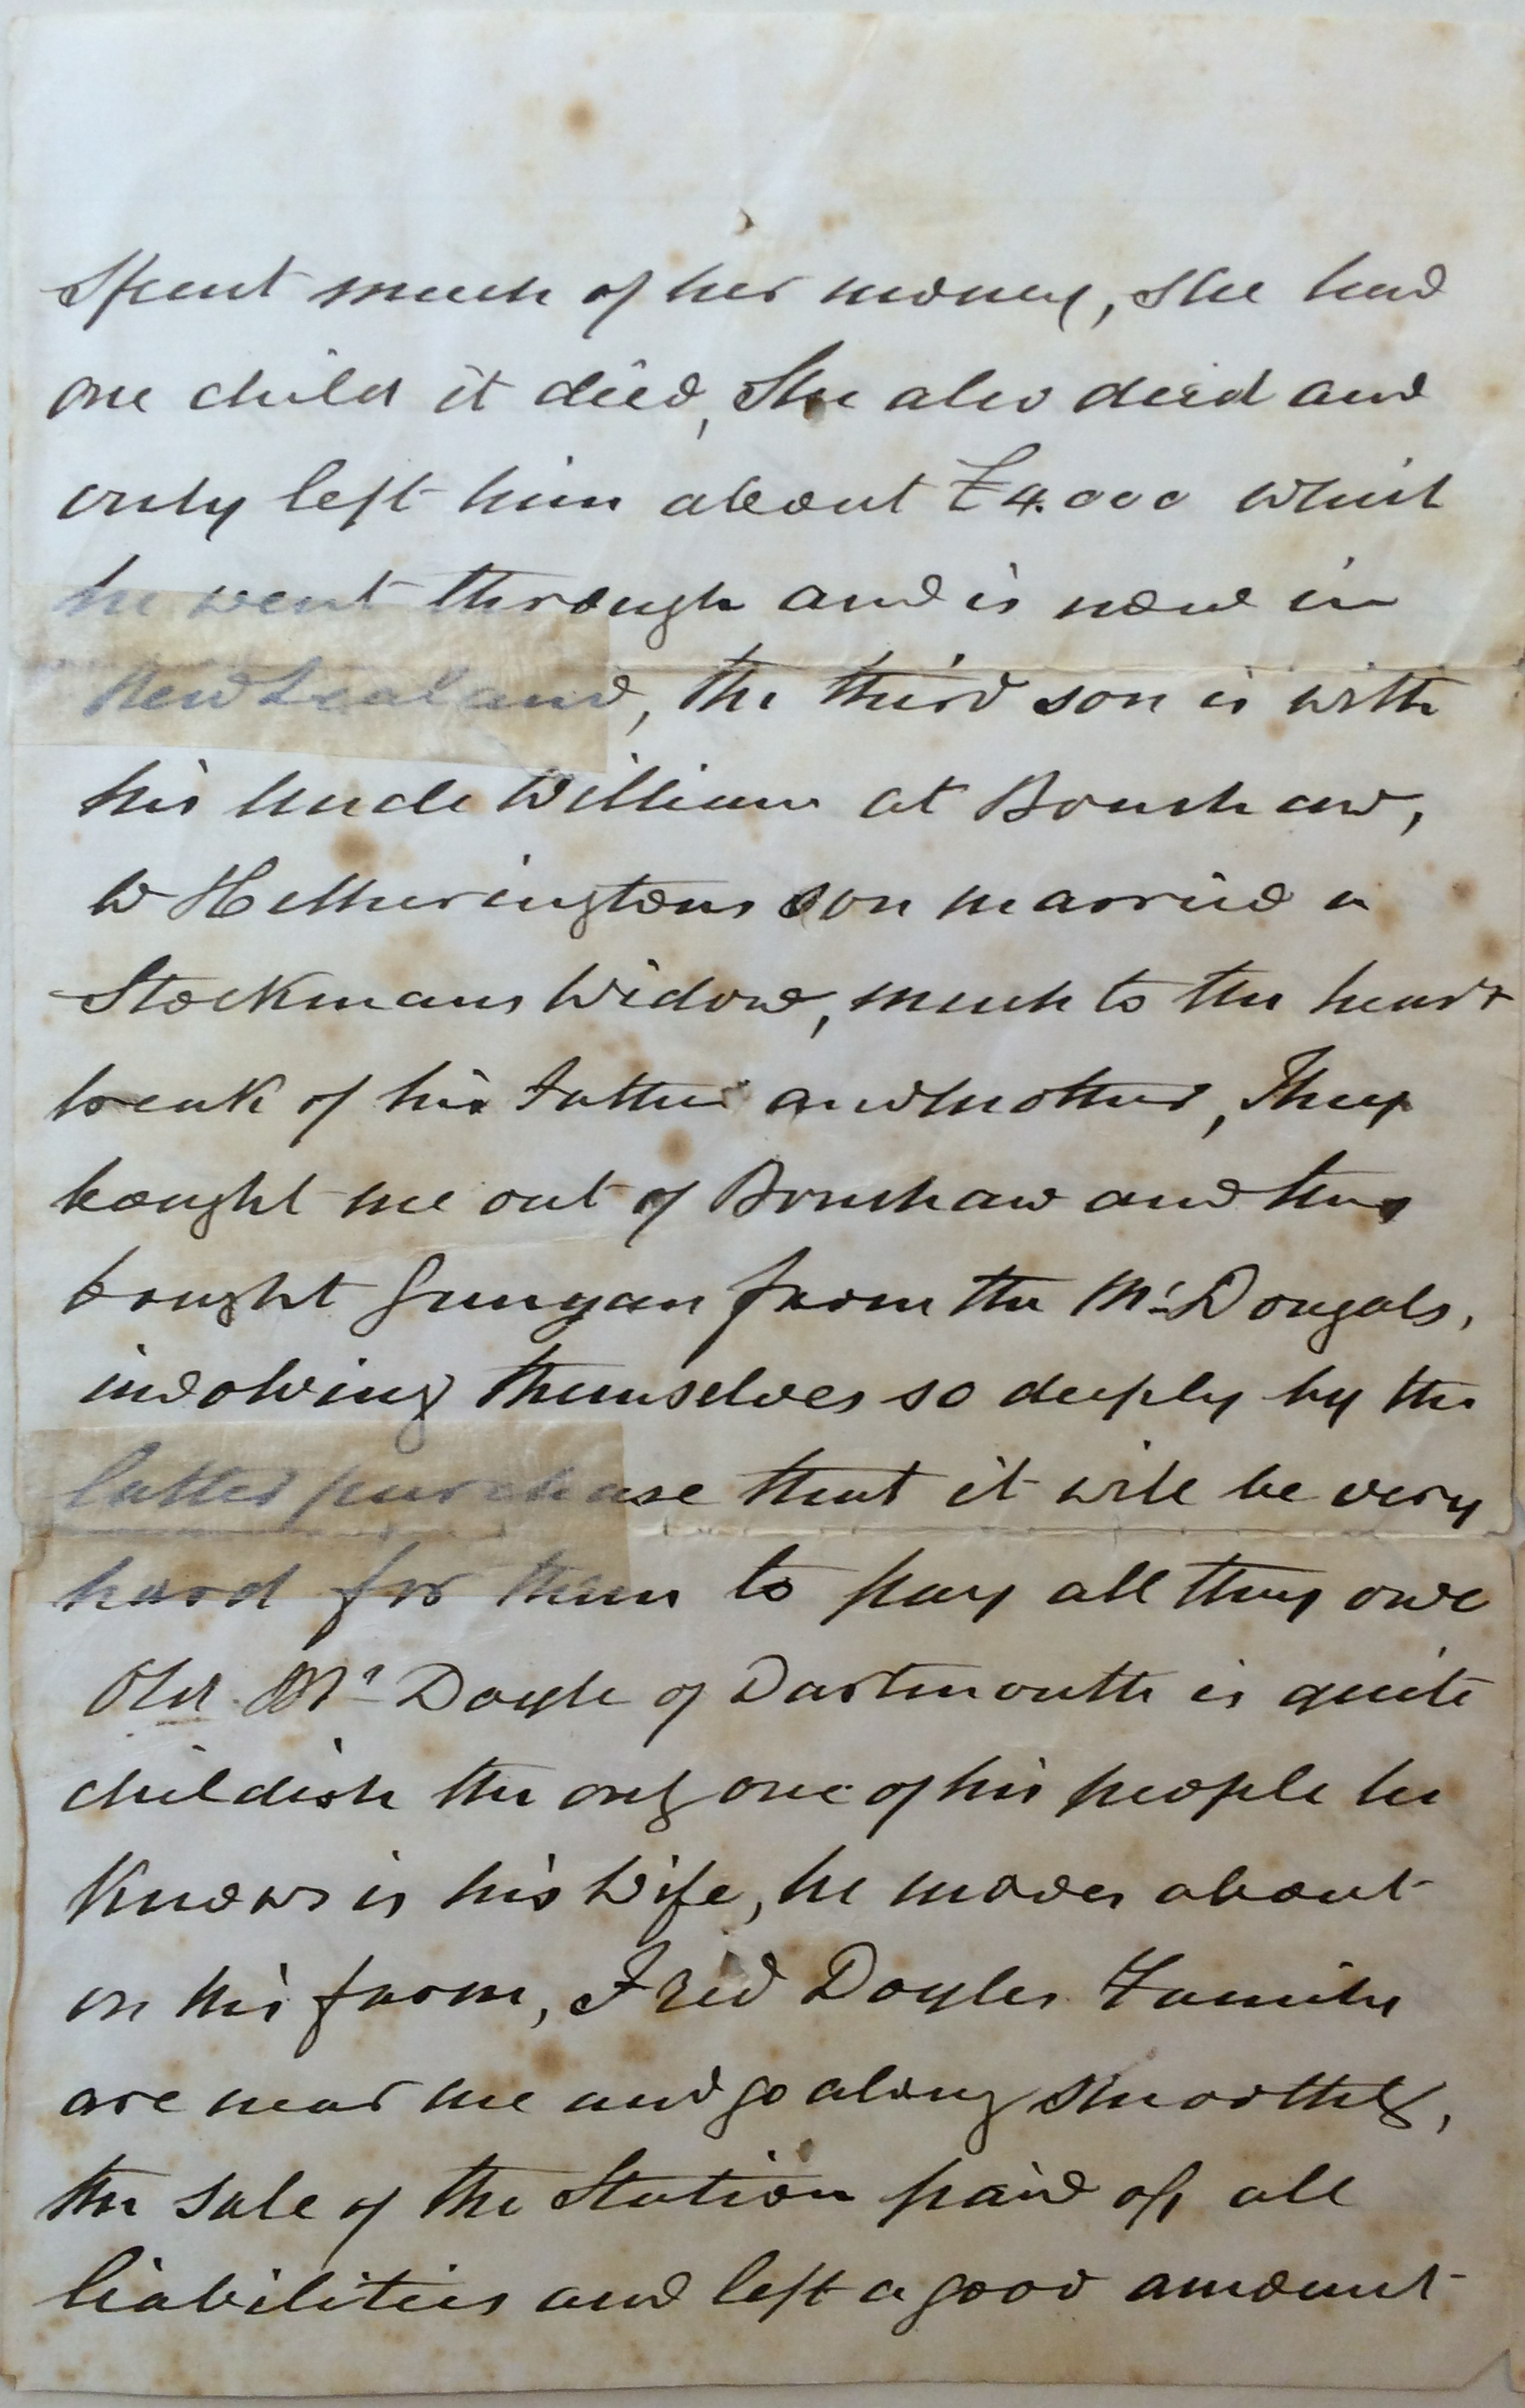 Spent much of her money, she had
one child it died, She also died and
only left him about £4.000 which
he went through and is now in
New Zealand, the third son is with
his Uncle William at Bonshaw,
W Hetheringtons son married a
Stockmans Widow, much to the heart
break of his Father and Mother, They
bought me out of Bonshaw and then
bought Gunyan from the McDougals,
involving themselves so deeply by the
latter purchase that it will be very
hard for them to pay all they owe
Old Mr Doyle of Dartmouth is quite
childish the only one of his people he
Knows is his Wife, he moves about
on his farm, Fred Doyles Family
are near me and go along smoothly,
the sale of the Station paid off all
liabilities and left a good amount